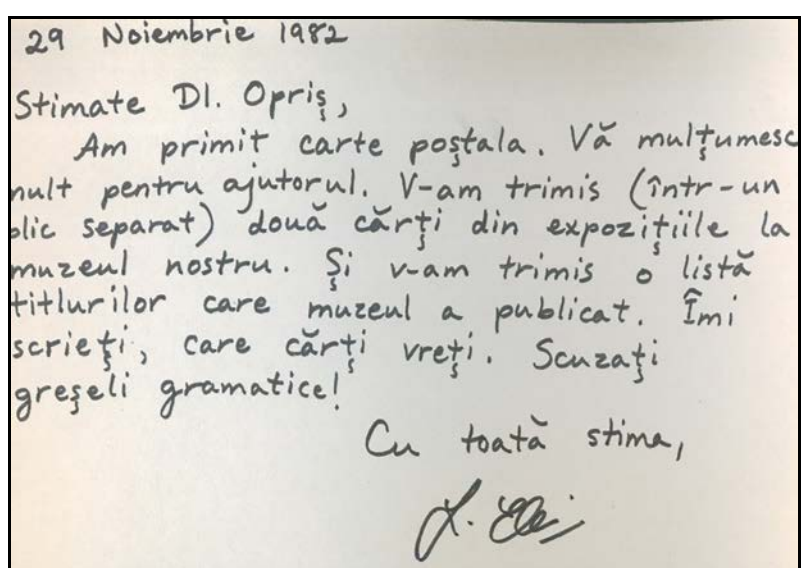 29 Noiembrie 1982
Stimate Dl. Opriş,
Am primit carte poştala. Vă mulţumesc
mult pentru ajutorul. V-am trimis (într-un
plic separat) două cărţi din expoziţiile la
muzeul nostru. Şi v-am trimis o listă
titlurilor care muzeul a publicat. Îmi
scrieţi, care cărţi vreţi. Scuzaţi
greşeli gramatice!
Cu toată stima,